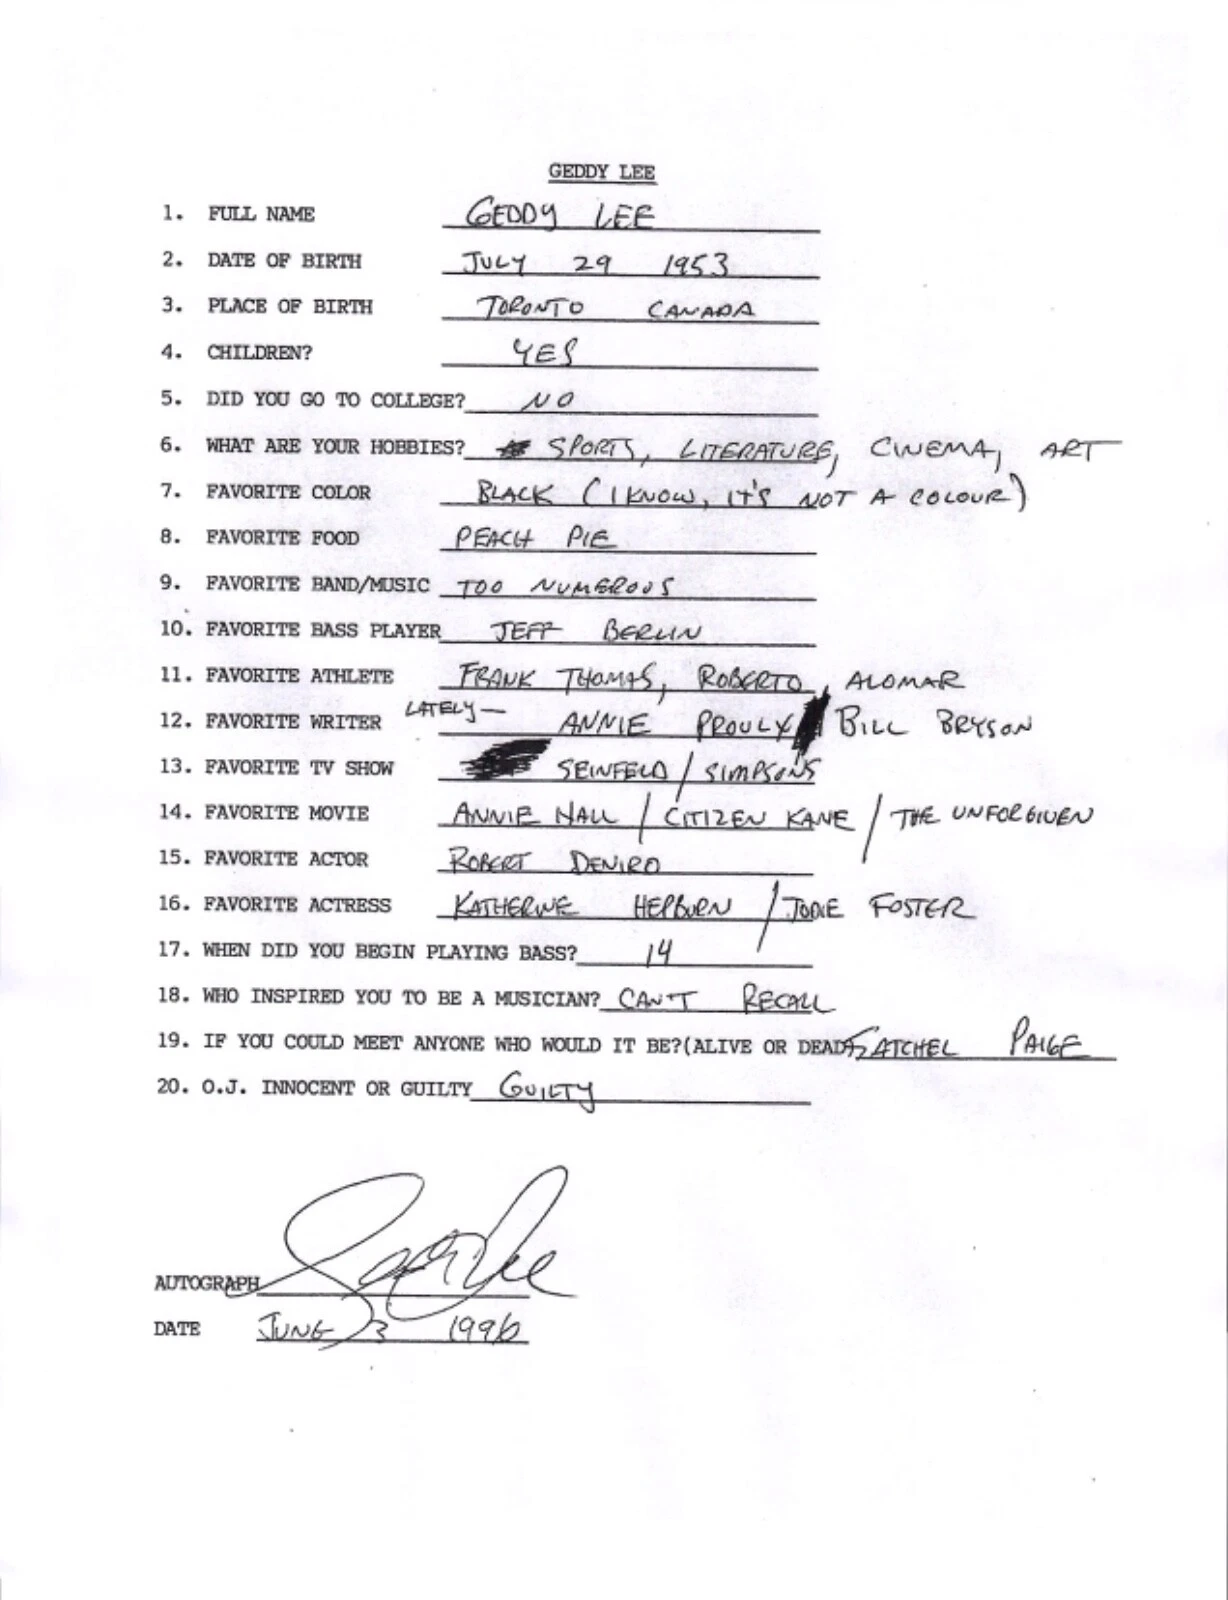 GEDDY LEE
1. FULL NAME GEDDY LEE
2. DATE OF BIRTH JULY 29 1953
3. PLACE OF BIRTH TORONTO CANADA
4. CHILDREN? YES
5. DID YOU GO TO COLLEGE? NO
6. WHAT ARE YOUR HOBBIES? SPORTS, LITERATURE, CINEMA, ART
7. FAVORITE COLOR BLACK (I KNOW, IT'S NOT A COLOUR)
8. FAVORITE FOOD PEACH PIE
9. FAVORITE BAND/MUSIC TOO NUMEROUS
10. FAVORITE BASS PLAYER JEFF BERLIN
11. FAVORITE ATHLETE FRANK THOMAS, ROBERTO, ALOMAR
12. FAVORITE WRITER LATELY— ANNIE PROULX BILL BRYSON
13. FAVORITE TV SHOW SEINFELD / SIMPSONS
14. FAVORITE MOVIE ANNIE HALL / CITIZEN KANE / THE UNFORGIVEN
15. FAVORITE ACTOR ROBERT DENIRO
16. FAVORITE ACTRESS KATHERINE HEPBURN / JODIE FOSTER
17. WHEN DID YOU BEGIN PLAYING BASS? 14
18. WHO INSPIRED YOU TO BE A MUSICIAN? CAN'T RECALL
19. IF YOU COULD MEET ANYONE WHO WOULD IT BE?(ALIVE OR DEAD) SATCHEL PAIGE
20. O.J. INNOCENT OR GUILTY GUILTY
AUTOGRAPH Geddy Lee
DATE JUNE 3 1996